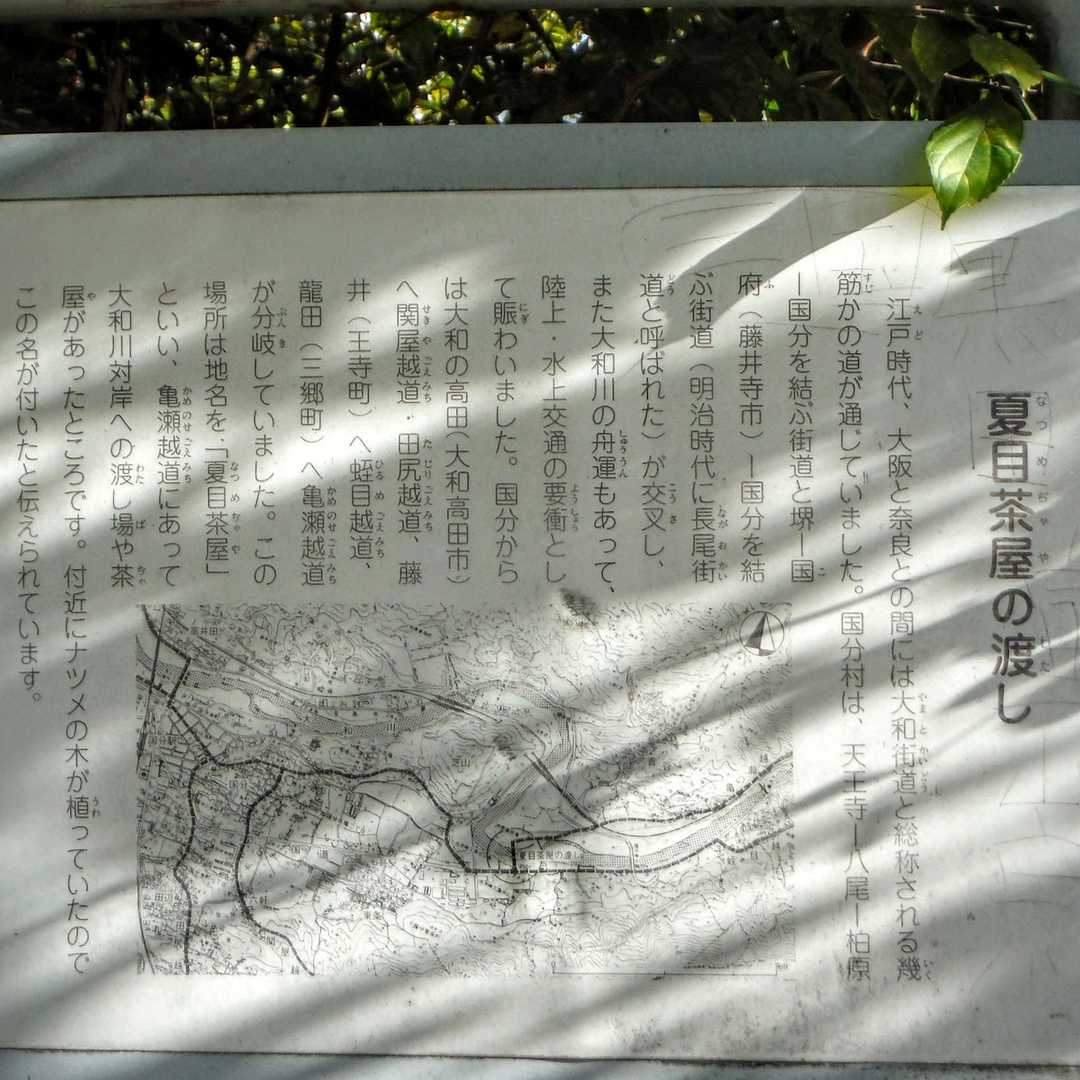 夏目茶屋の渡し
江戸時代、大阪と奈良との間には大和街道と総称される幾
筋かの道が通じていました。国分村は、天王寺ー八尾ー柏原
ー国分を結ぶ街道と堺ー国
府（藤井寺市）ー国分を結
ぶ街道（明治時代に長尾街
道と呼ばれた）が交叉し、
また大和川の舟運もあって、
陸上・水上交通の要衝とし
て賑わいました。国分から
は大和の高田（大和高田市）
へ関屋越道・田尻越道、藤
井（王寺町）へ蛭目越道、
龍田（三郷町）へ亀瀬越道
が分岐していました。この
場所は地名を「夏目茶屋」
といい、亀瀬越道にあって
大和川対岸への渡し場や茶
屋があったところです。付近にナツメの木が植っていたので
この名が付いたと伝えられています。
高井田
夏目茶屋の渡し